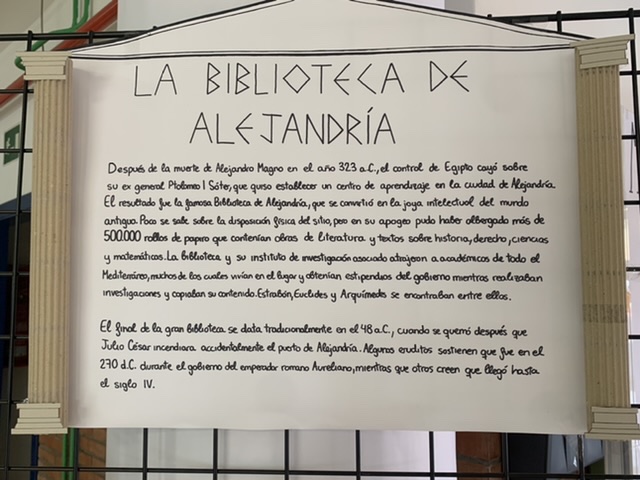 LA BIBLIOTECA DE
ALEJANDRÍA
Después de la muerte de Alejandro Magno en el año 323 a.C., el control de Egipto cayó sobre
su ex general Ptolomeo I Sóter, que quiso establecer un centro de aprendizaje en la ciudad de Alejandría.
El resultado fue la famosa Biblioteca de Alejandría, que se convirtió en la joya intelectual del mundo
antiguo. Poco se sabe sobre la disposición física del sitio, pero en su apogeo pudo haber albergado más de
500.000 rollos de papiro que contenían obras de literatura y textos sobre historia, derecho, ciencias
y matemáticas. La biblioteca y su instituto de investigación asociado atrajeron a académicos de todo el
Mediterráneo, muchos de los cuales vivían en el lugar y obtenían estipendios del gobierno mientras realizaban
investigaciones y copiaban su contenido. Estrabón, Euclides y Arquímedes se encontraban entre ellos.
El final de la gran biblioteca se data tradicionalmente en el 48 a.C., cuando se quemó después que
Julio César incendiara accidentalmente el puerto de Alejandría. Algunos eruditos sostienen que fue en el
270 d.C. durante el gobierno del emperador romano Aureliano, mientras que otros creen que llegó hasta
el siglo IV.